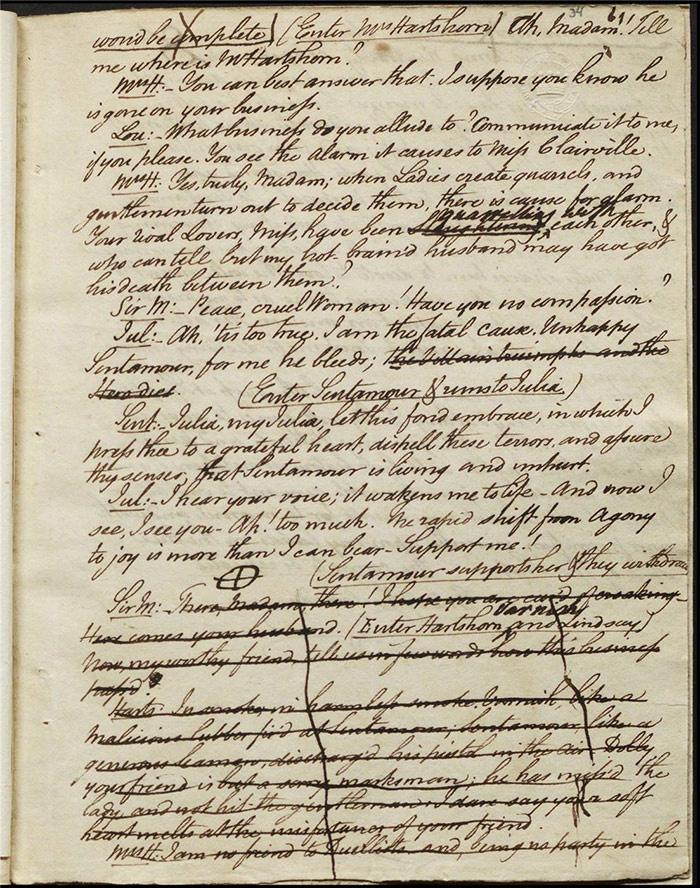 34 61
wou'd be complete (Enter Mrs Hartshorn) Oh, Madam! Tell
me where is Mr Hartshorn?
Mrs H:- You can best answer that. I suppose you know he
is gone on your business.
Lou:- What business do you allude to? Communicate it to me,
if you please. You see the alarm it causes to Miss Clairville.
Mrs H: Yes, truly, Madam; when Ladies create quarrels, and
gentlemen turn out to decide them, there is cause for alarm.
quarrelling with
Your rival Lovers, Miss, have been slaughtering each other, &
who can tell but my hot-brain'd husband may have got
his death between them?
Sir M:- Peace, cruel Woman! Have you no compassion?
Jul:- Ah, 'tis too true. I am the fatal cause. Unhappy
Sentamour, for me he bleeds; the Villain triumphs and the
Hero dies. (Enter Sentamour & runs to Julia)
Sent:- Julia, my Julia, let this fond embrace, in which I
press thee to a grateful heart, dispell these terrors, and assure
thy senses, that Sentamour is living and unhurt.
Jul:- I hear your voice; it wakens me to life - And now I
see, I see you - Ah! too much. The rapid shift from Agony
to joy is more than I can bear - Support me!
(Sentamour supports her & they withdraw
Sir M:- There, Madam, there! I hope you are cur'd of croaking -
Varnish
Here comes your husband. (Enter Hartshorn, and Lindsay)
Now, my worthy friend, tell us in few words how this business
pass'd?
Harts: In smoke, in harmless smoke. Varnish, like a
malicious lubber fir'd at Sentamour; Sentamour, like a
generous Seaman, discharg'd his pistol in the air. Dolly,
your friend is but a sorry marksman; he has miss'd the
lady and not hit the gentleman. I dare say your soft
heart melts at the misfortunes of your friend.
Mrs H: I am no friend to Duellists and, being no party in the